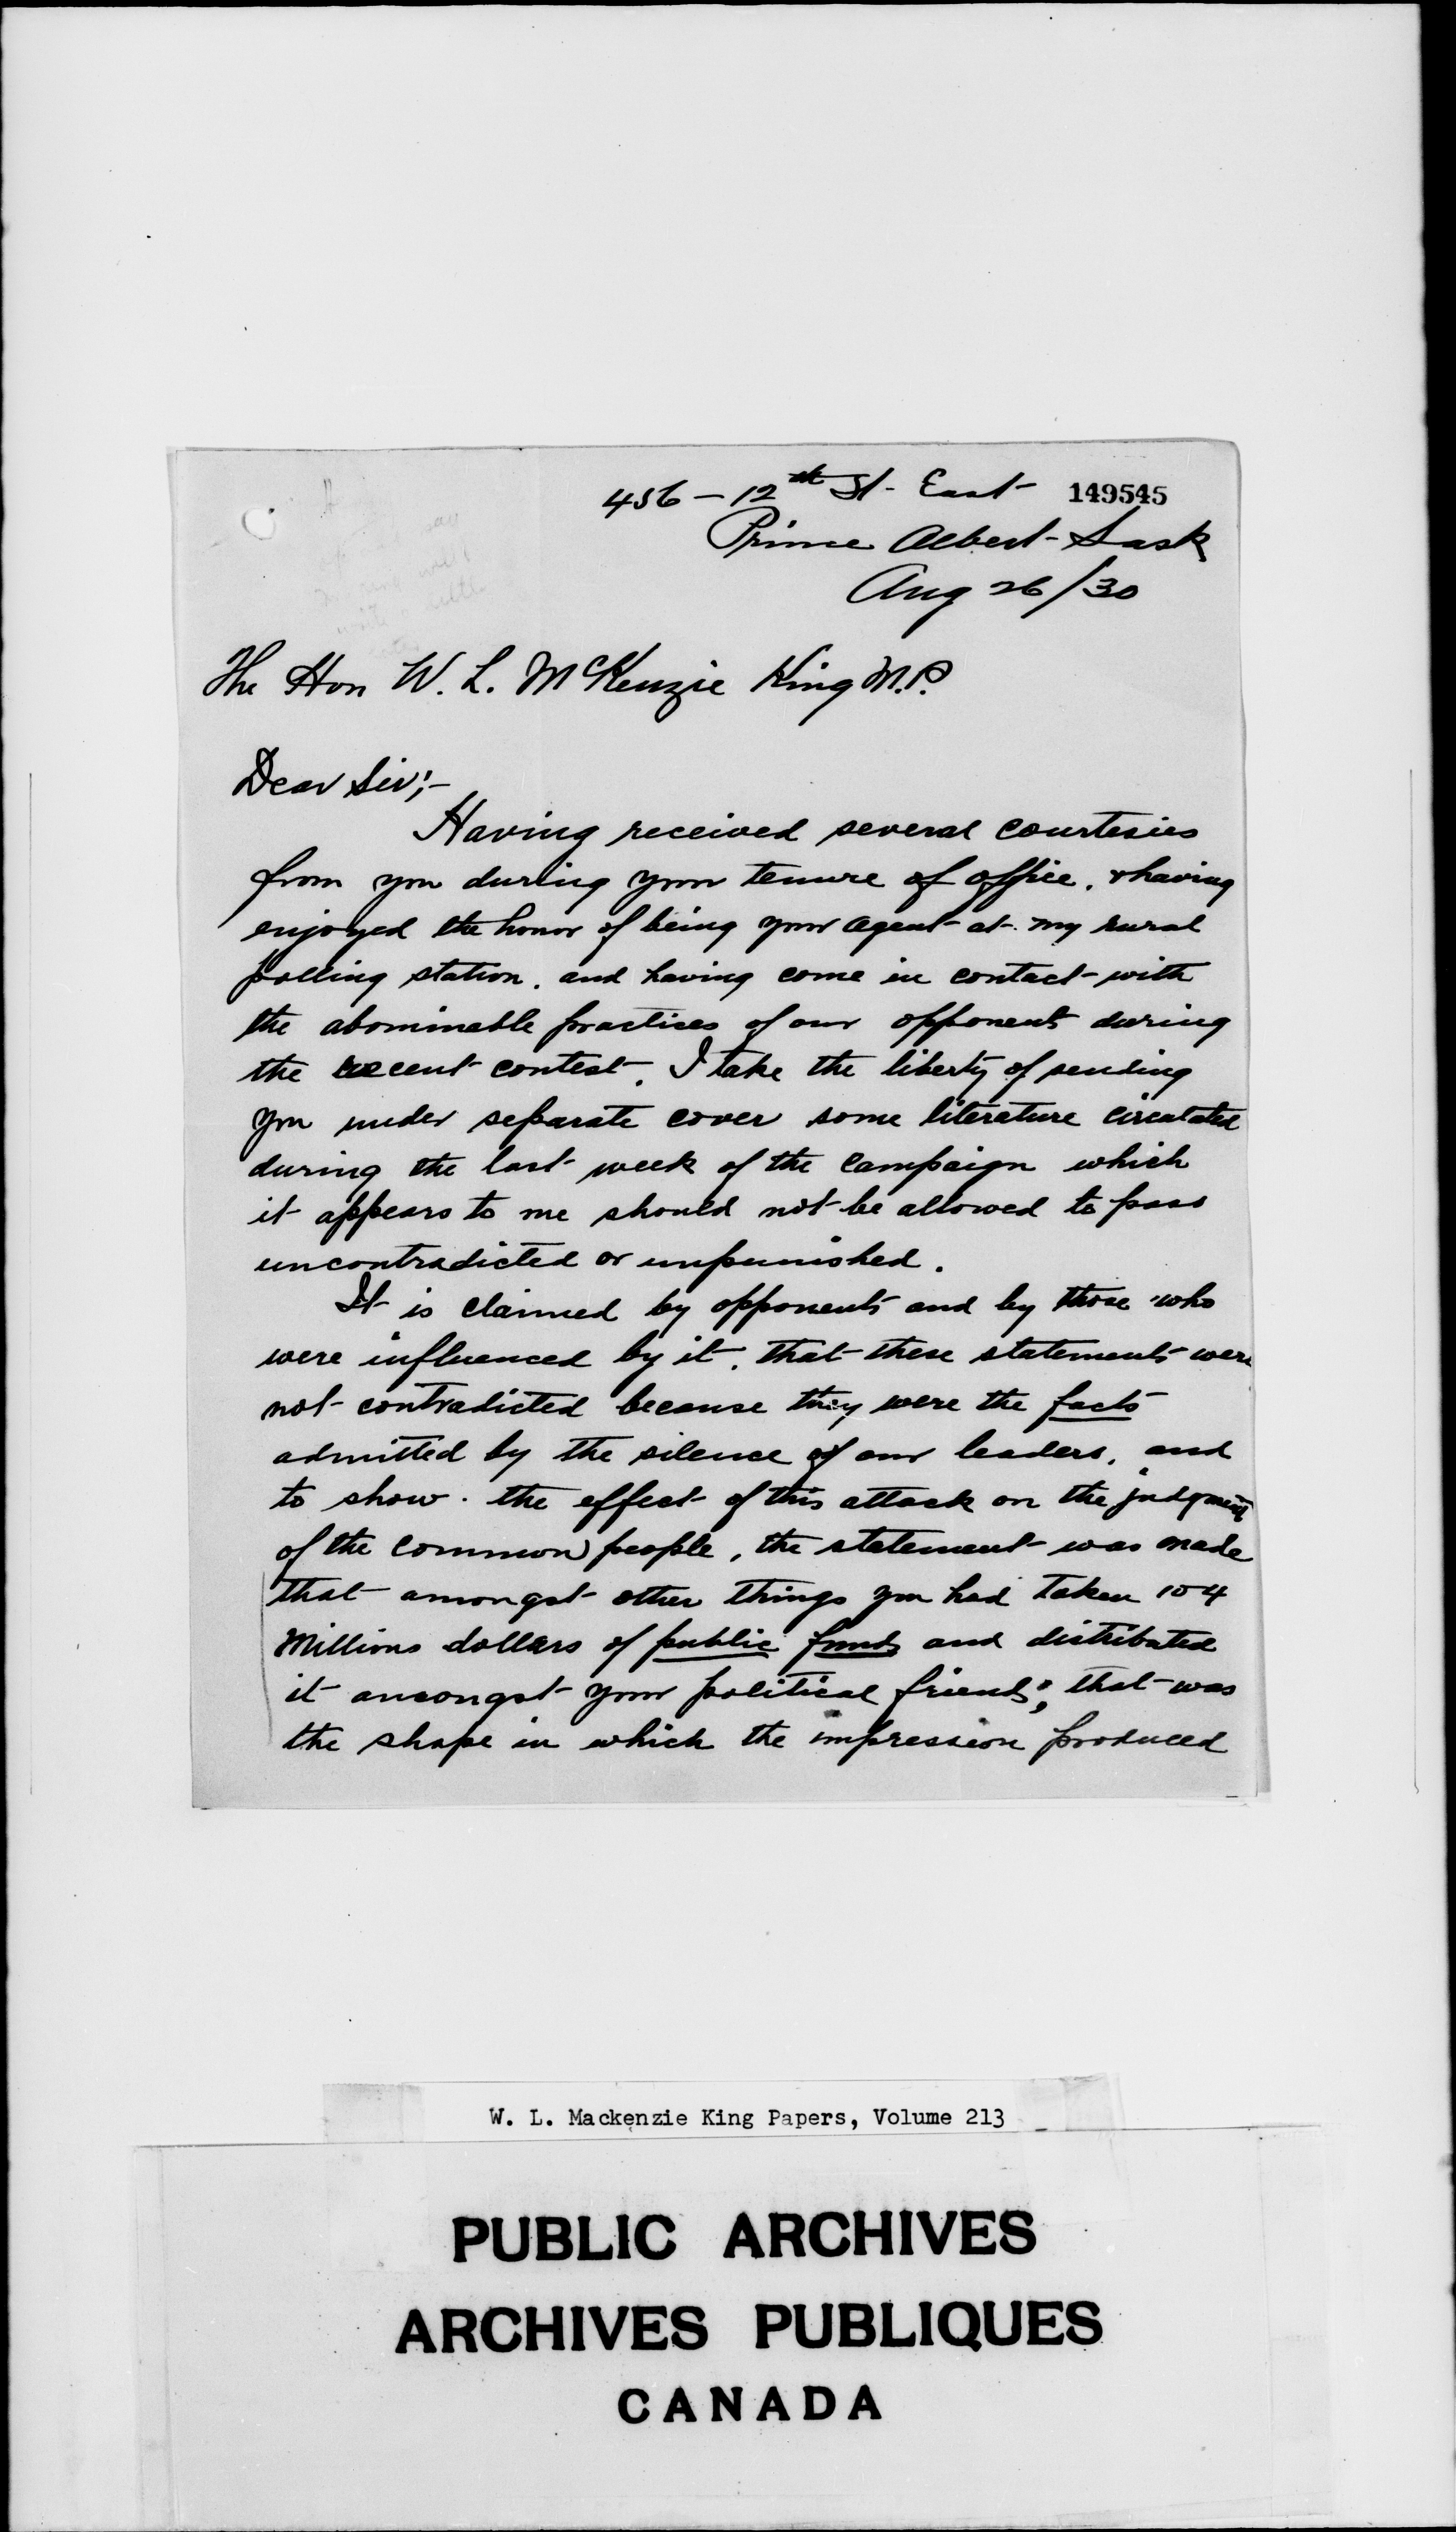 456 - 12th St. East 149545
Prince Albert - Sask
Aug 26/30
The Hon W. L. McKenzie King M.P.
Dear Sir;-
Having received several courtesies
from you during your tenure of office. & having
enjoyed the honor of being your agent at my rural
polling station. and having come in contact with
the abominable practices of our opponents during
the recent contest. I take the liberty of sending
you under separate cover some literature circulated
during the last week of the campaign which
it appears to me should not be allowed to pass
uncontradicted or unpunished.
It is claimed by opponents and by those who
were influenced by it. that these statements were
not contradicted because they were the facts
admitted by the silence of our leaders. and
to show the effect of this attack on the judgment
of the common people, the statement was made
that amongst other things you had taken 104
Millions dollars of public funds and distributed
it amongst your political friends", that was
the shape in which the impression produced
W. L. Mackenzie King Papers, Volume 213
PUBLIC ARCHIVES
ARCHIVES PUBLIQUES
CANADA